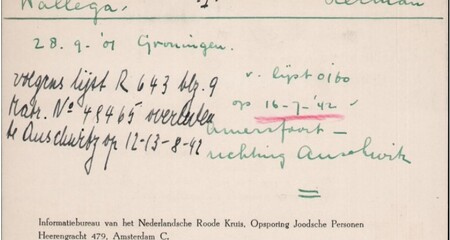 Wallega. I Herman
28.9-'01 Groningen.
volgens lijst R 643 blz. 9
Matr. No 48465 overleden
te Auschwitz op 12-13-8-42
v. lijst 0160
op 16-7-'42
Amersfoort -
richting Auschwitz
=
Informatiebureau van het Nederlandsche Roode Kruis, Opsporing Joodsche Personen
Heerengracht 479, Amsterdam C.